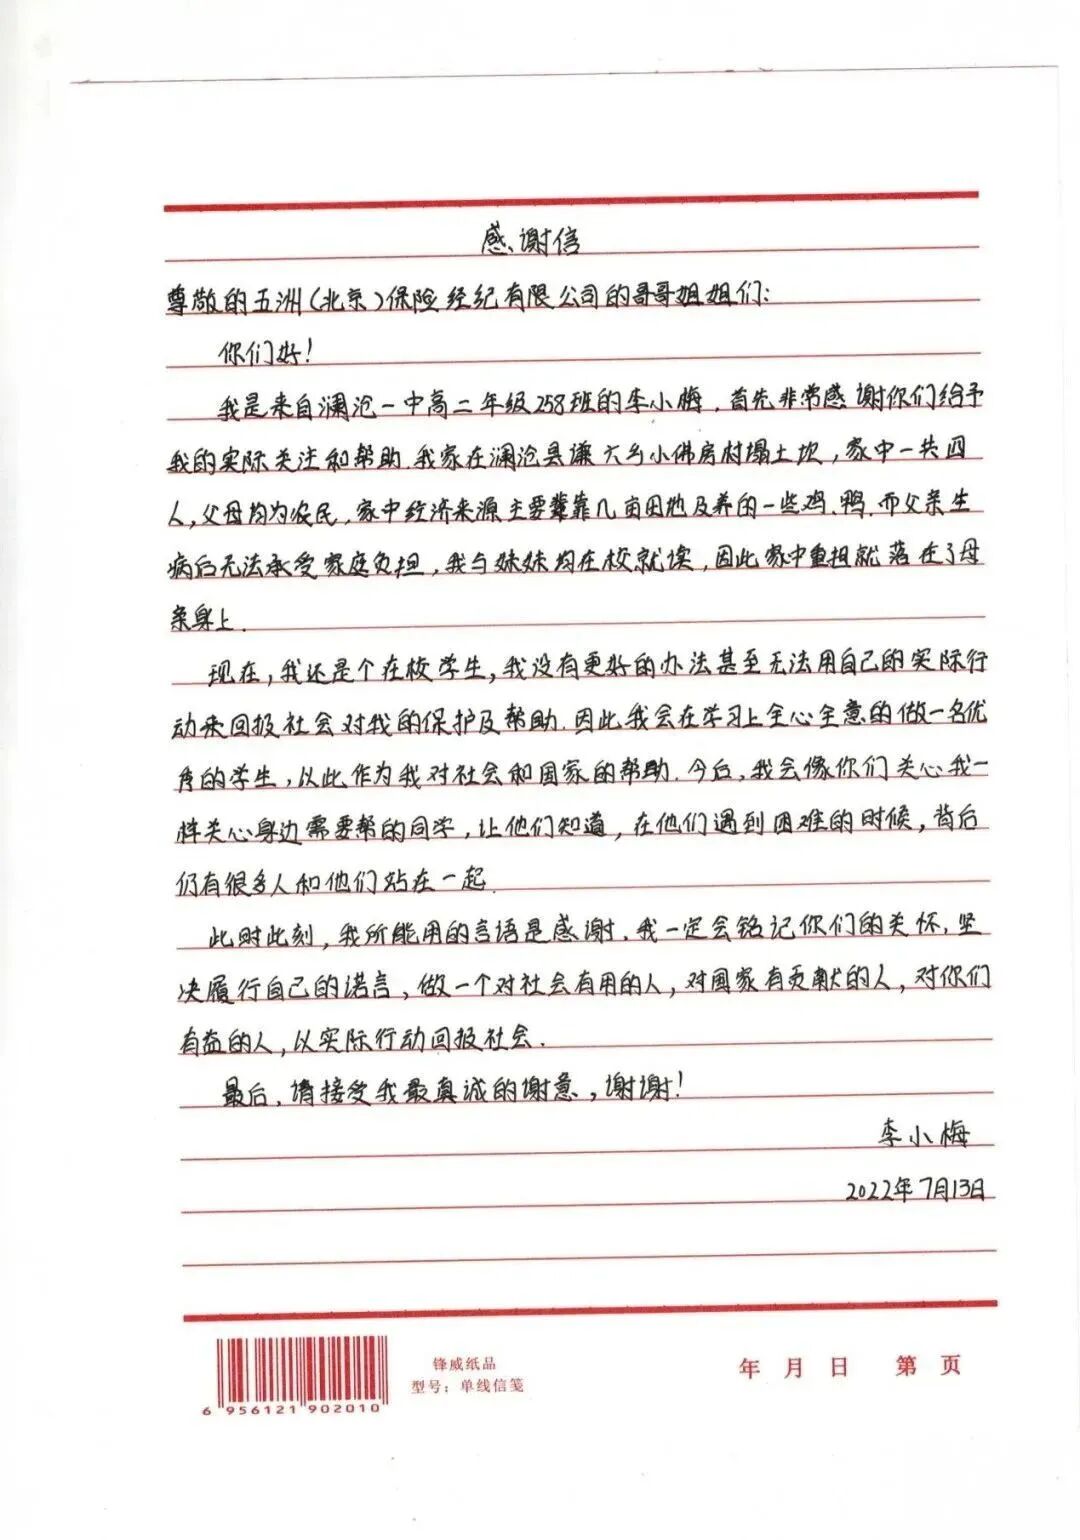 感谢信
尊敬的五洲(北京)保险经纪有限公司的哥哥姐姐们:
你们好!
我是来自澜沧一中高二年级258班的李小梅,首先非常感谢你们给予
我的实际关注和帮助.我家在澜沧县谦六乡小佛房村塌土坎,家中一共四
人,父母均为农民,家中经济来源主要靠几亩田地及养的一些鸡.鸭.而父亲生
病后无法承受家庭负担,我与妹妹均在校就读,因此家中重担就落在了母
亲身上.
现在,我还是个在校学生,我没有更好的办法甚至无法用自己的实际行
动来回报社会对我的保护及帮助.因此我会在学习上全心全意的做一名优
秀的学生,以此作为我对社会和国家的帮助.今后,我会像你们关心我一
样关心身边需要帮的同学,让他们知道,在他们遇到困难的时候,背后
仍有很多人和他们站在一起.
此时此刻,我所能用的言语是感谢.我一定会铭记你们的关怀,坚
决履行自己的诺言,做一个对社会有用的人,对国家有贡献的人,对你们
有益的人,以实际行动回报社会.
最后,请接受我最真诚的谢意,谢谢!
李小梅
2022年7月13日
锋威纸品
型号:单线信笺
年 月 日 第 页
6 956121 902010